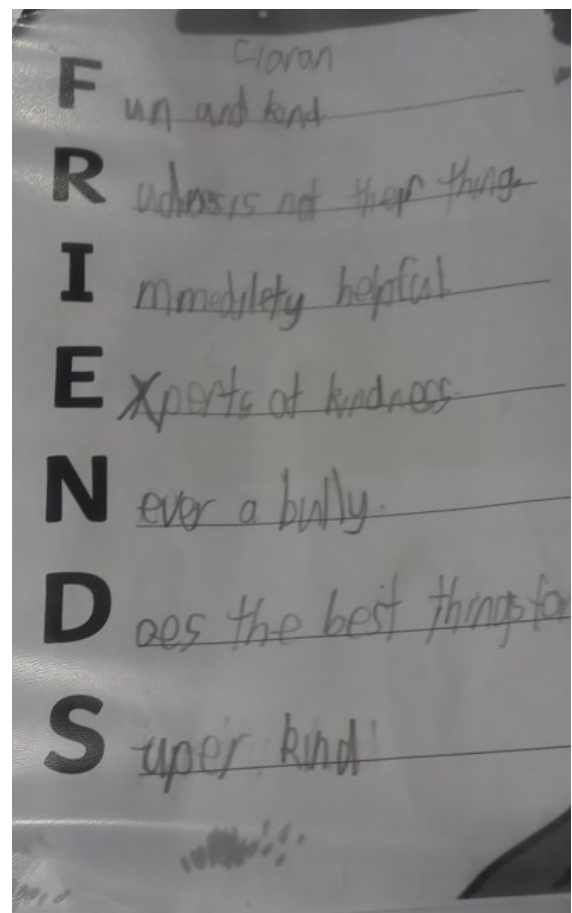 Cioran
Fun and kind
Rudness is not their thing.
Immediletly helpful
Experts at kindness.
Never a bully.
Does the best things for
Super kind!